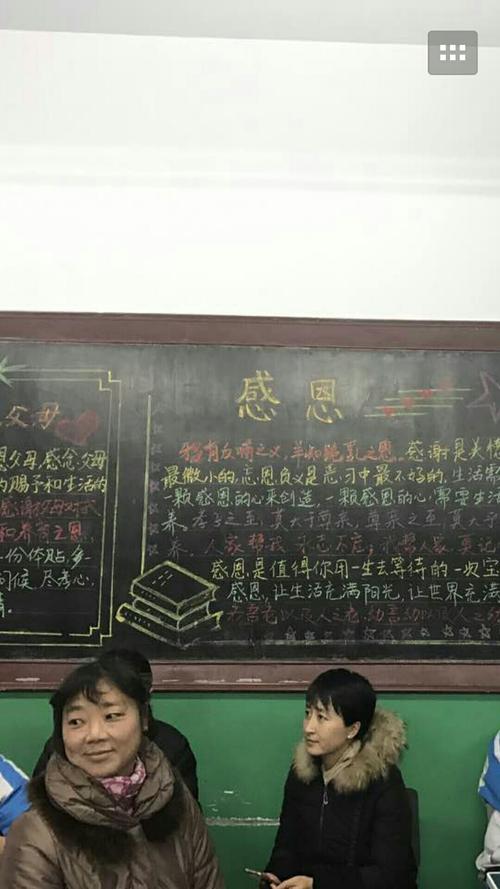 父母
感恩
恩父母,感念父母
的赐予和生活的
和养育之恩,
一份体贴,多一
问候,尽孝心,
鸦有反哺之义,羊知跪乳之恩。感谢是美德
最微小的,忘恩负义是恶习中最不好的,生活需
一颗感恩的心来创造,一颗感恩的心需要生活
养。孝子之至,莫大乎尊亲,尊亲之至,莫大乎
养。人家帮我,永志不忘,我帮人家,莫记
感恩是值得你用一生去等待的一次宝
感恩,让生活充满阳光,让世界充满
老吾老以及人之老,幼吾幼以及人之幼